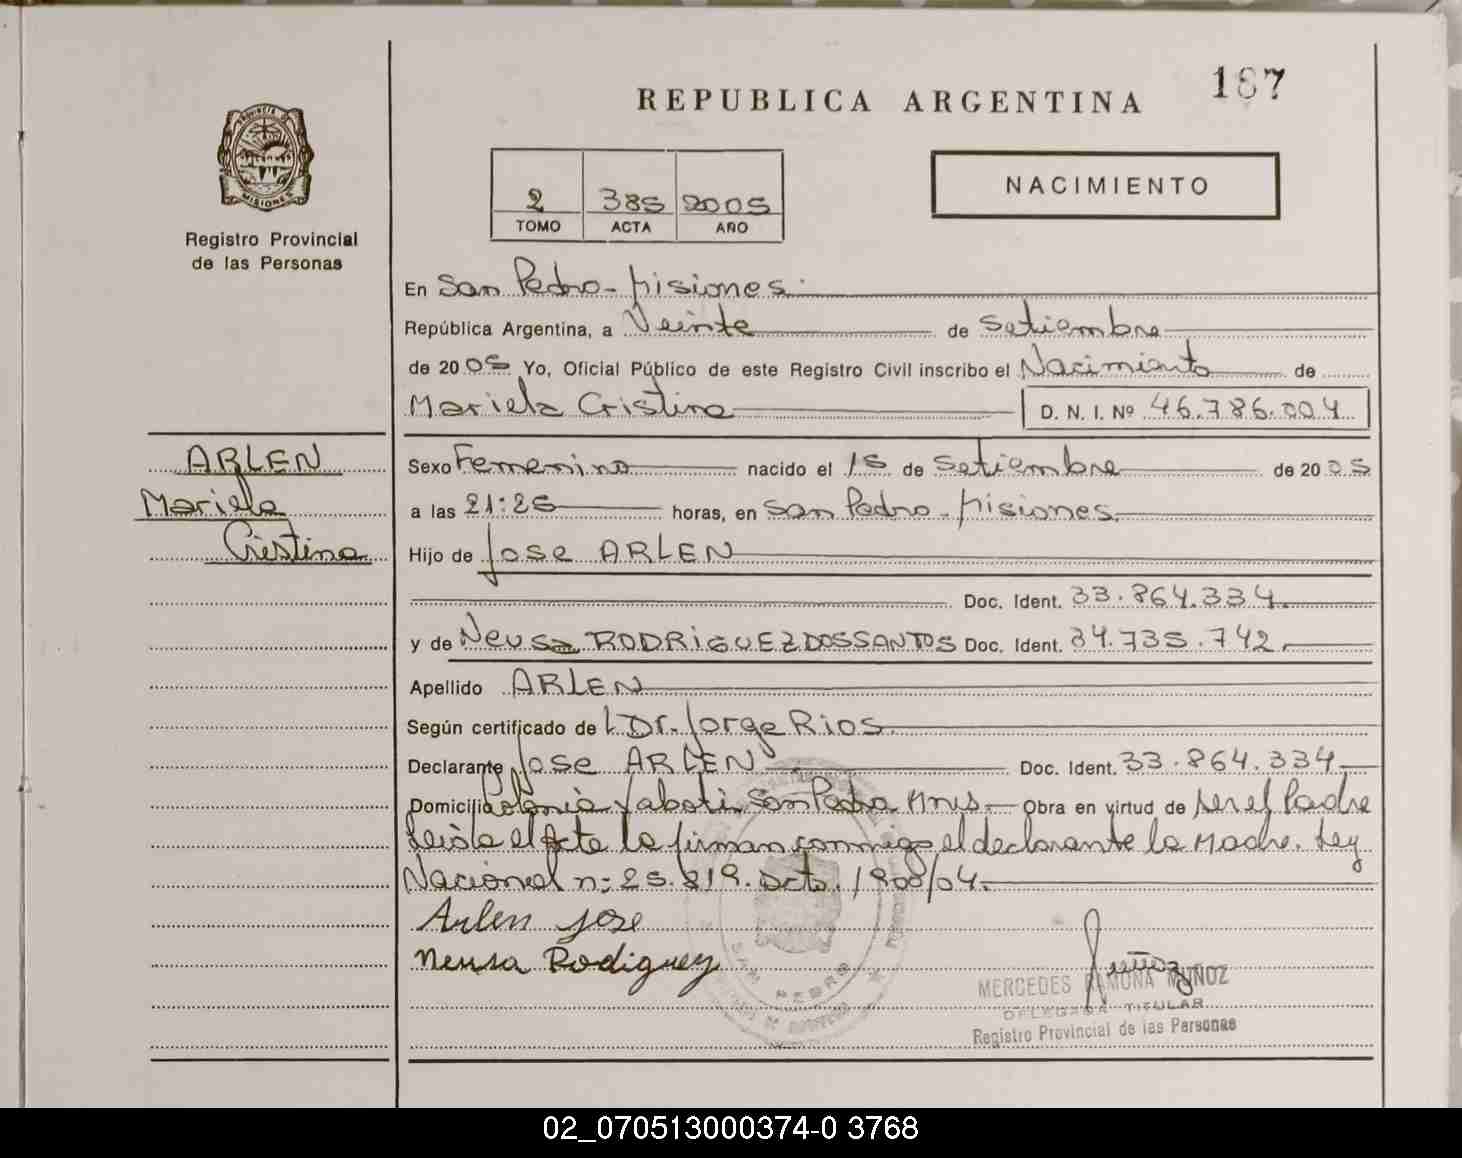 REPUBLICA ARGENTINA
187
PROVINCIA DE
MISIONES
Registro Provincial
de las Personas
2 385 2005
TOMO ACTA AÑO
NACIMIENTO
En San Pedro - Misiones
República Argentina, a Veinte de Setiembre
de 2005 Yo, Oficial Público de este Registro Civil inscribo el Nacimiento de
Mariela Cristina D. N. I. Nº 46.786.004
ARLEN
Mariela
Cristina
Sexo Femenino nacido el 15 de Setiembre de 2005
a las 21:25 horas, en San Pedro - Misiones
Hijo de Jose ARLEN
Doc. Ident. 33.864.334
y de Neusa RODRIGUEZ DOS SANTOS Doc. Ident. 34.735.742
Apellido ARLEN
Según certificado de Dr. Jorge Rios
Declarante Jose ARLEN Doc. Ident. 33.864.334
Domicilio Colonia Yaboti San Pedro Mnes. Obra en virtud de ser el Padre
Leída el Acta la firman conmigo el declarante la Madre. Ley
Nacional n: 25.819. Dcto. 1900/04.
Arlen Jose
Neusa Rodiguez
SAN PEDRO
Muñoz
MERCEDES RAMONA MUÑOZ
DELEGADA TITULAR
Registro Provincial de las Personas
02_070513000374-0 3768